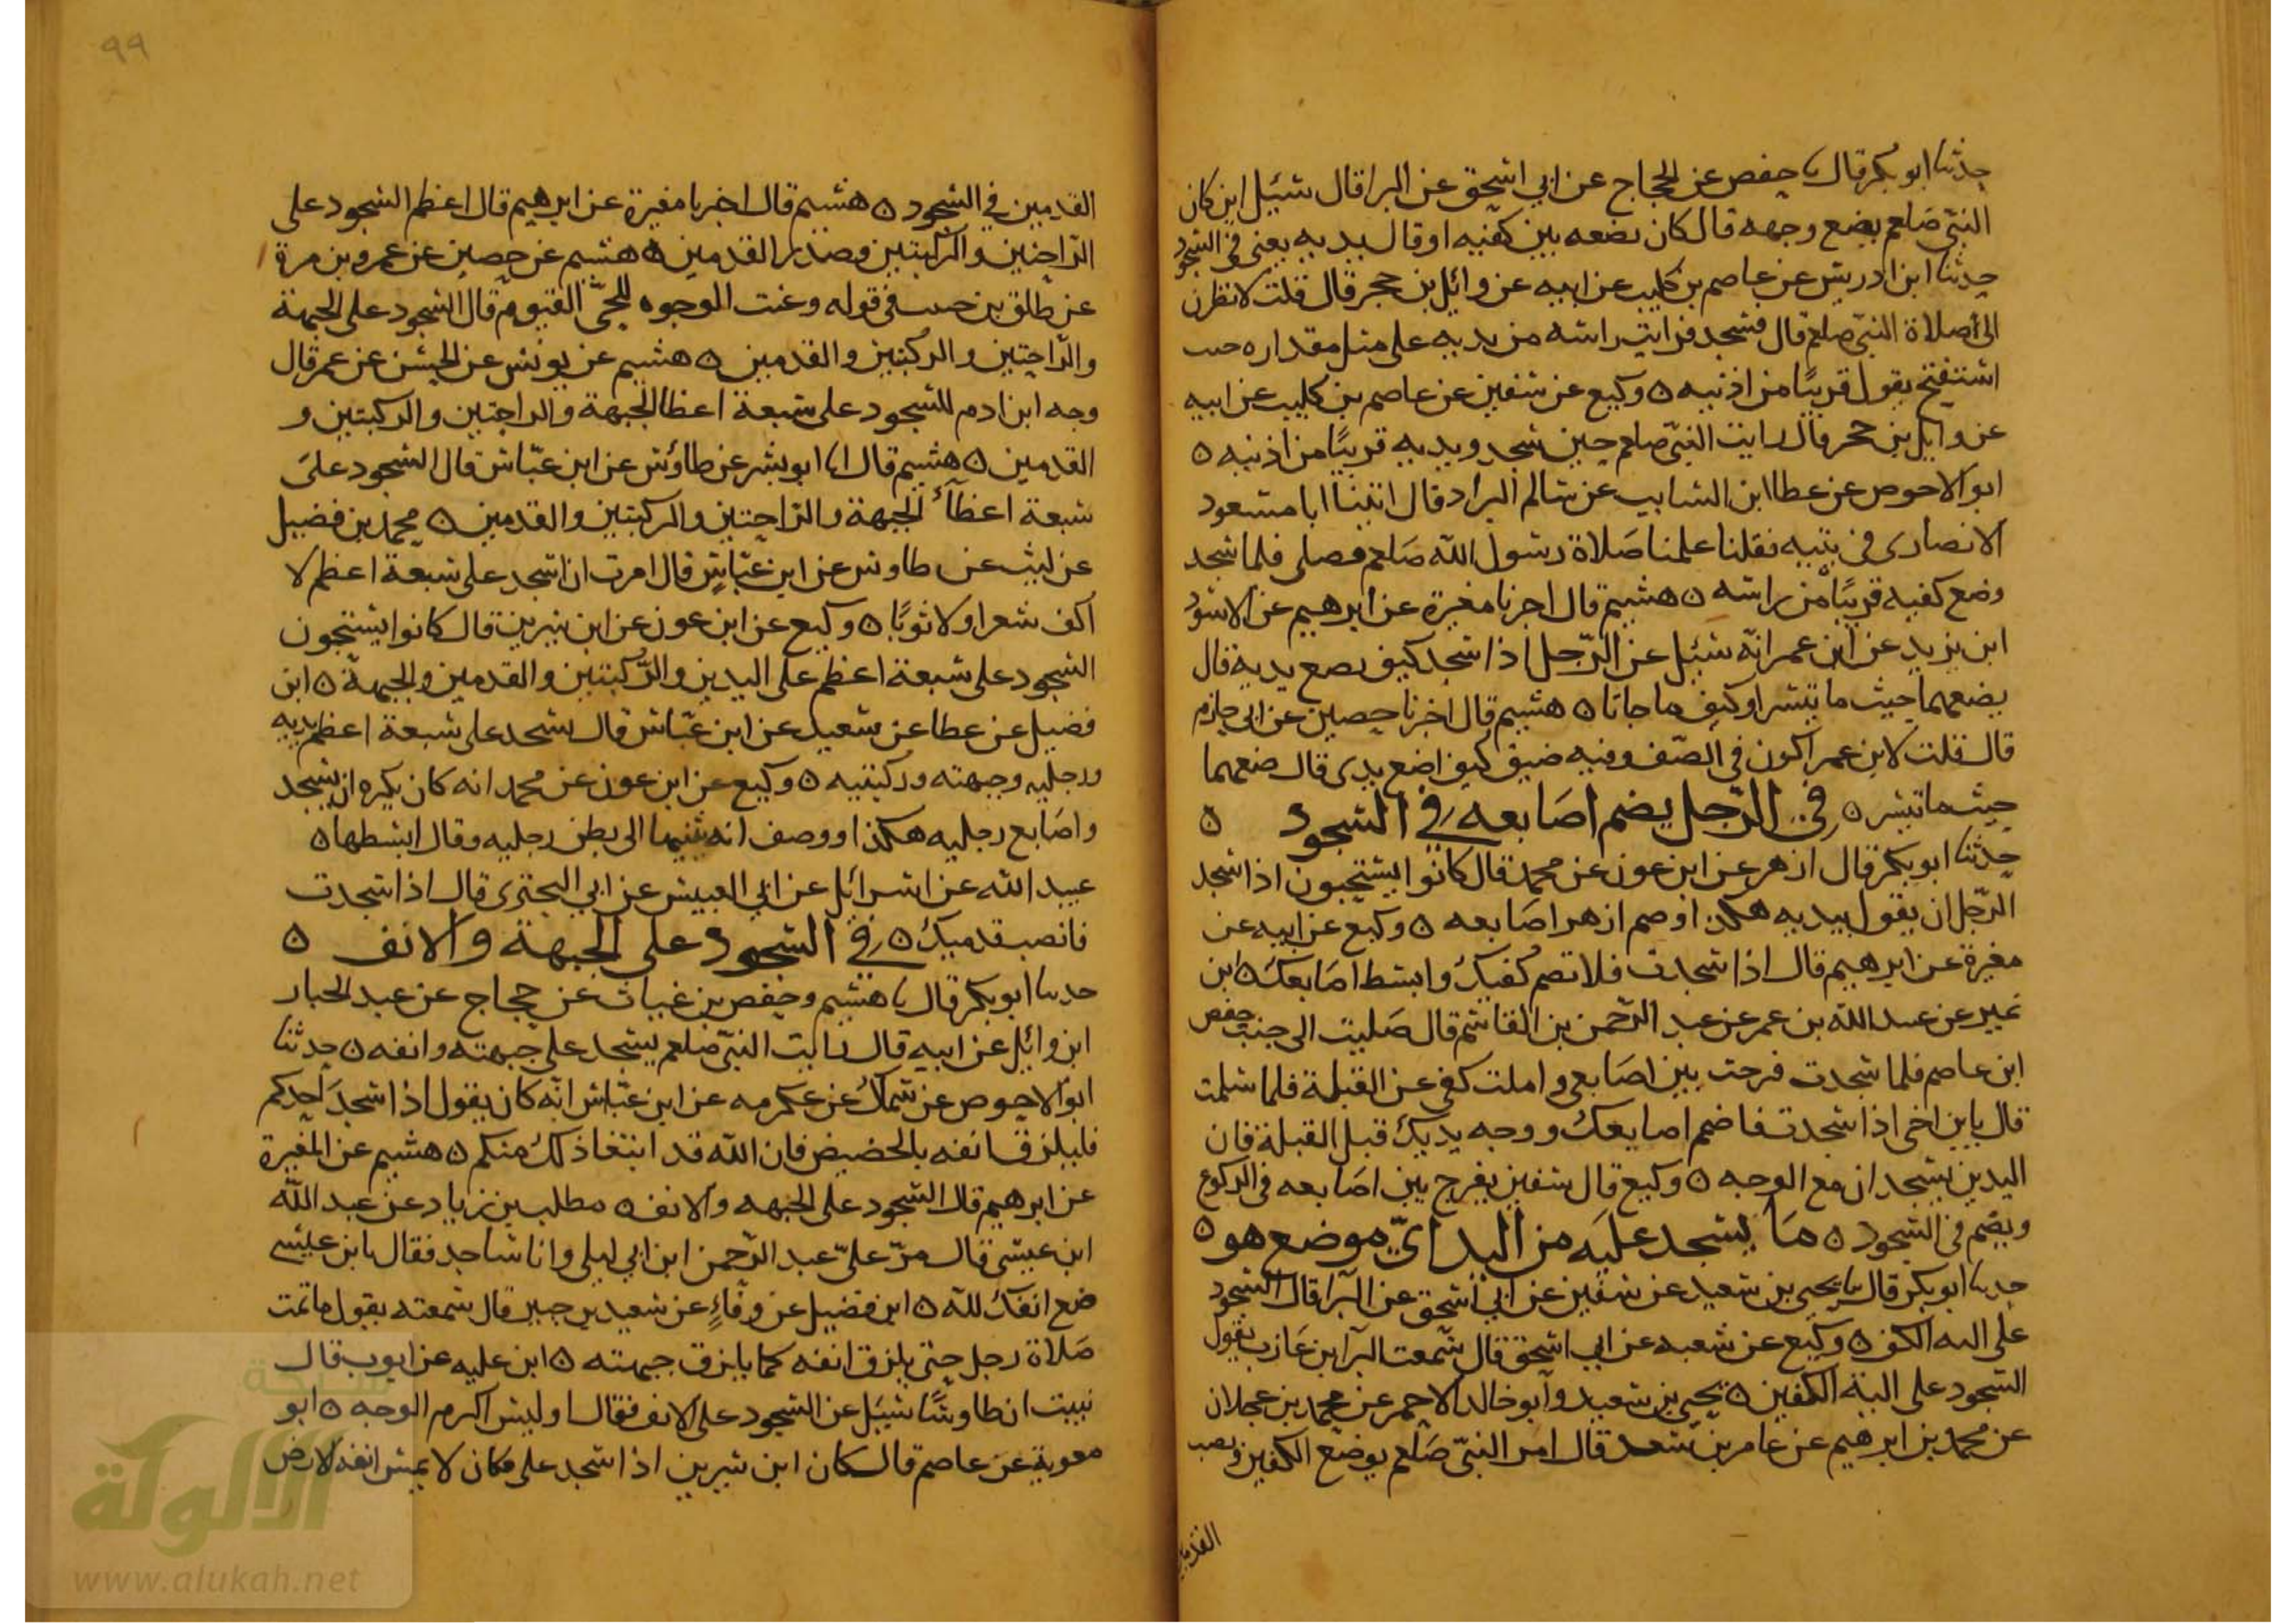 حدثنا ابو بكر قال نا حفص عن الحجاج عن ابي اسحق عن البرا قال سئل اين كان
النبي صلعم يضع وجهه قال كان يضعه بين كفيه او قال يديه يعني في السجود
حدثنا ابن ادريس عن عاصم بن كليب عن ابيه عن وائل بن حجر قال قلت لانظرن
الى صلاة النبي صلعم قال فسجد فرايت راسه من يديه على مثل مقداره حيث
استفتح يقول قريبا من اذنيه ٥ وكيع عن سفين عن عاصم بن كليب عن ابيه
عن وايل بن حجر قال رايت النبي صلعم حين سجد ويديه قريبا من اذنيه ٥
ابو الاحوص عن عطا ابن السايب عن سالم البراد قال اتينا ابا مسعود
الانصارى في بيته فقلنا علمنا صلاة رسول الله صلعم فصلى فلما سجد
وضع كفيه قريبا من راسه ٥ هشيم قال اخرنا مغيرة عن ابرهيم عن الاسود
ابن يزيد عن ابن عمر انه سئل عن الرجل اذا سجد كيف يضع يديه قال
يضعهما حيث ما تيسر او كيف ما جاتا ٥ هشيم قال اخرنا حصين عن ابي حازم
قال قلت لابن عمر اكون في الصف وفيه ضيق كيف اضع يدى قال ضعهما
حيث ما تيسر ٥ في الرجل يضم اصابعه في السجود ٥
حدثنا ابو بكر قال ازهر عن ابن عون عن محمد قال كانوا يستحبون اذا سجد
الرجل ان يقول بيديه هكذا وضم ازهر اصابعه ٥ وكيع عن ابيه عن
مغيرة عن ابرهيم قال اذا سجدت فلا تضم كفيك وابسط اصابعك ٥ ابن
نمير عن عبيد الله بن عمر عن عبد الرحمن بن القاسم قال صليت الى جنب حفص
ابن عاصم فلما سجدت فرجت بين اصابعي واملت كفي عن القبلة فلما سلمت
قال يابن اخي اذا سجدت فاضم اصابعك ووجه يديك قبل القبلة فان
اليدين يسجدان مع الوجه ٥ وكيع قال سفين يفرج بين اصابعه في الركوع
ويضم في السجود ٥ ما يسجد عليه من اليد اي موضع هو ٥
حدثنا ابو بكر قال نا يحيى بن سعيد عن سفين عن ابي اسحق عن البرا قال السجود
على اليه الكف ٥ وكيع عن شعبه عن ابي اسحق قال سمعت البرا بن عازب يقول
السجود على الية الكفين ٥ يحيى بن سعيد وابو خالد الاحمر عن محمد بن عجلان
عن محمد بن ابرهيم عن عامر بن سعد قال امر النبي صلعم بوضع الكفين ونصب
القدمين
٩٩
القدمين في السجود ٥ هشيم قال اخرنا مغيرة عن ابرهيم قال اعظم السجود على
الراحتين والركبتين وصدر القدمين ٥ هشيم عن حصين عن عمرو بن مرة
عن طلق بن حبيب في قوله وعنت الوجوه للحي القيوم قال السجود على الجبهة
والراحتين والركبتين والقدمين ٥ هشيم عن يونس عن الحسن عن عمر قال
وجه ابن ادم للسجود على سبعة اعظا الجبهة والراحتين والركبتين و
القدمين ٥ هشيم قال انا ابو بشر عن طاوس عن ابن عباس قال السجود على
سبعة اعظاء الجبهة والراحتين والركبتين والقدمين ٥ محمد بن فضيل
عن ليث عن طاوس عن ابن عباس قال امرت ان اسجد على سبعة اعظم لا
اكف شعرا ولا ثوبا ٥ وكيع عن ابن عون عن ابن سيرين قال كانوا يستحبون
السجود على سبعة اعظم على اليدين والركبتين والقدمين والجبهة ٥ ابن
فضيل عن عطا عن سعيد عن ابن عباس قال يسجد على سبعة اعظم يديه
ورجليه وجبهته وركبتيه ٥ وكيع عن ابن عون عن محمد انه كان يكره ان يسجد
واصابع رجليه هكذا ووصف انه يثنيها الى بطن رجليه وقال ابسطها ٥
عبيد الله عن اسرائل عن ابي العبيس عن ابي البخترى قال اذا سجدت
فانصب قدميك ٥ في السجود على الجبهة والانف ٥
حدثنا ابو بكر قال نا هشيم وحفص بن غياث عن حجاج عن عبد الجبار
ابن وائل عن ابيه قال رايت النبي صلعم يسجد على جبهته وانفه ٥ حدثنا
ابو الاحوص عن سماك عن عكرمه عن ابن عباس انه كان يقول اذا سجد احدكم
فليلزق انفه بالحضيض فان الله قد ابتغا ذلك منكم ٥ هشيم عن المغيرة
عن ابرهيم قال السجود على الجبهه والانف ٥ مطلب بن زياد عن عبد الله
ابن عيسى قال مر علي عبد الرحمن ابن ابي ليلى وانا ساجد فقال يابن عيسى
ضع انفك لله ٥ ابن فضيل عن وقاء عن سعيد بن جبير قال سمعته يقول ما تمت
صلاة رجل حتى يلزق انفه كما يلزق جبهته ٥ ابن عليه عن ايوب قال
نبيت ان طاوسا سئل عن السجود على الانف فقال او ليس اكرم الوجه ٥ ابو
معوية عن عاصم قال كان ابن سيرين اذا سجد على مكان لا يمس انفه الارض
شبكة
الألوكة
www.alukah.net